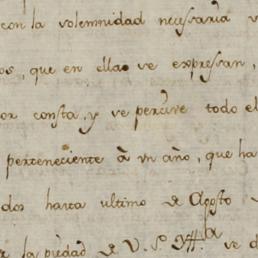 con la volemnidad necesaria v
os, que en ellas ve expresan,
or consta, y ve percive todo el
perteneciente à un año, que ha
dos hasta ultimo de Agosto
la piedad de V. S.
ve d